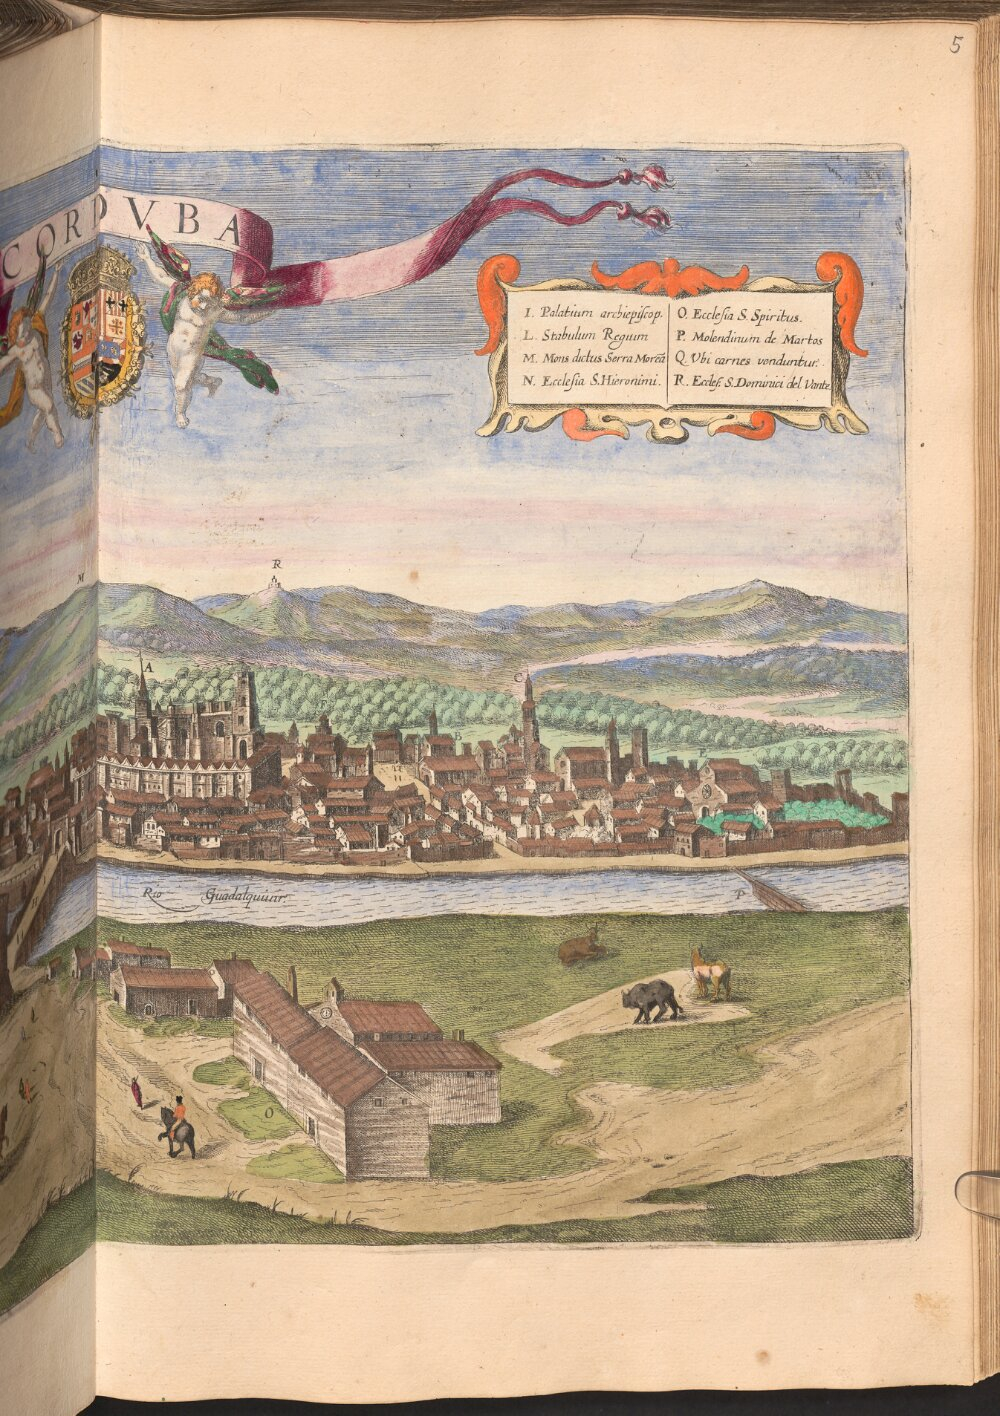 5
CORDVBA
I. Palatium archiepiscop.
L. Stabulum Regium
M. Mons dictus Serra Morea
N. Ecclesia S. Hieronimi.
O. Ecclesia S. Spiritus.
P. Molendinum de Martos
Q. Vbi carnes venduntur.
R. Eccles. S. Dominici del Vantz
R
M
A
C
B
E
H
Rio Guadalquiuir.
P
O